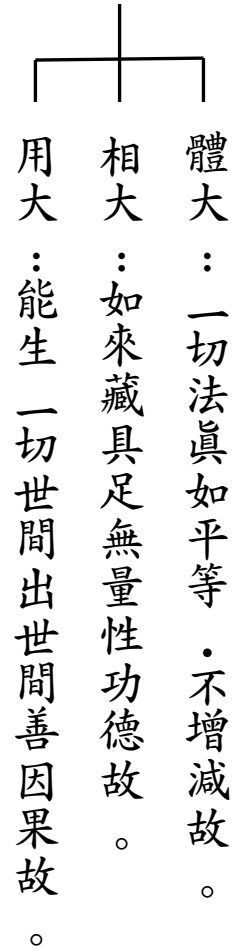 體大：一切法眞如平等．不增減故。
相大：如來藏具足無量性功德故。
用大：能生一切世間出世間善因果故。